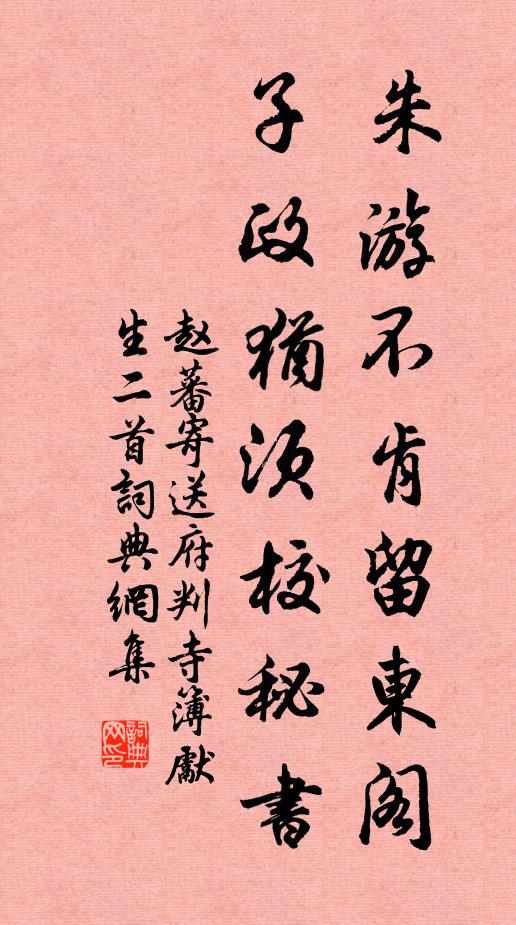 朱游不肯留東阁
子政猶须校秘書
赵蕃寄送府判寺簿獻
生二首詞典網集
詞典网印